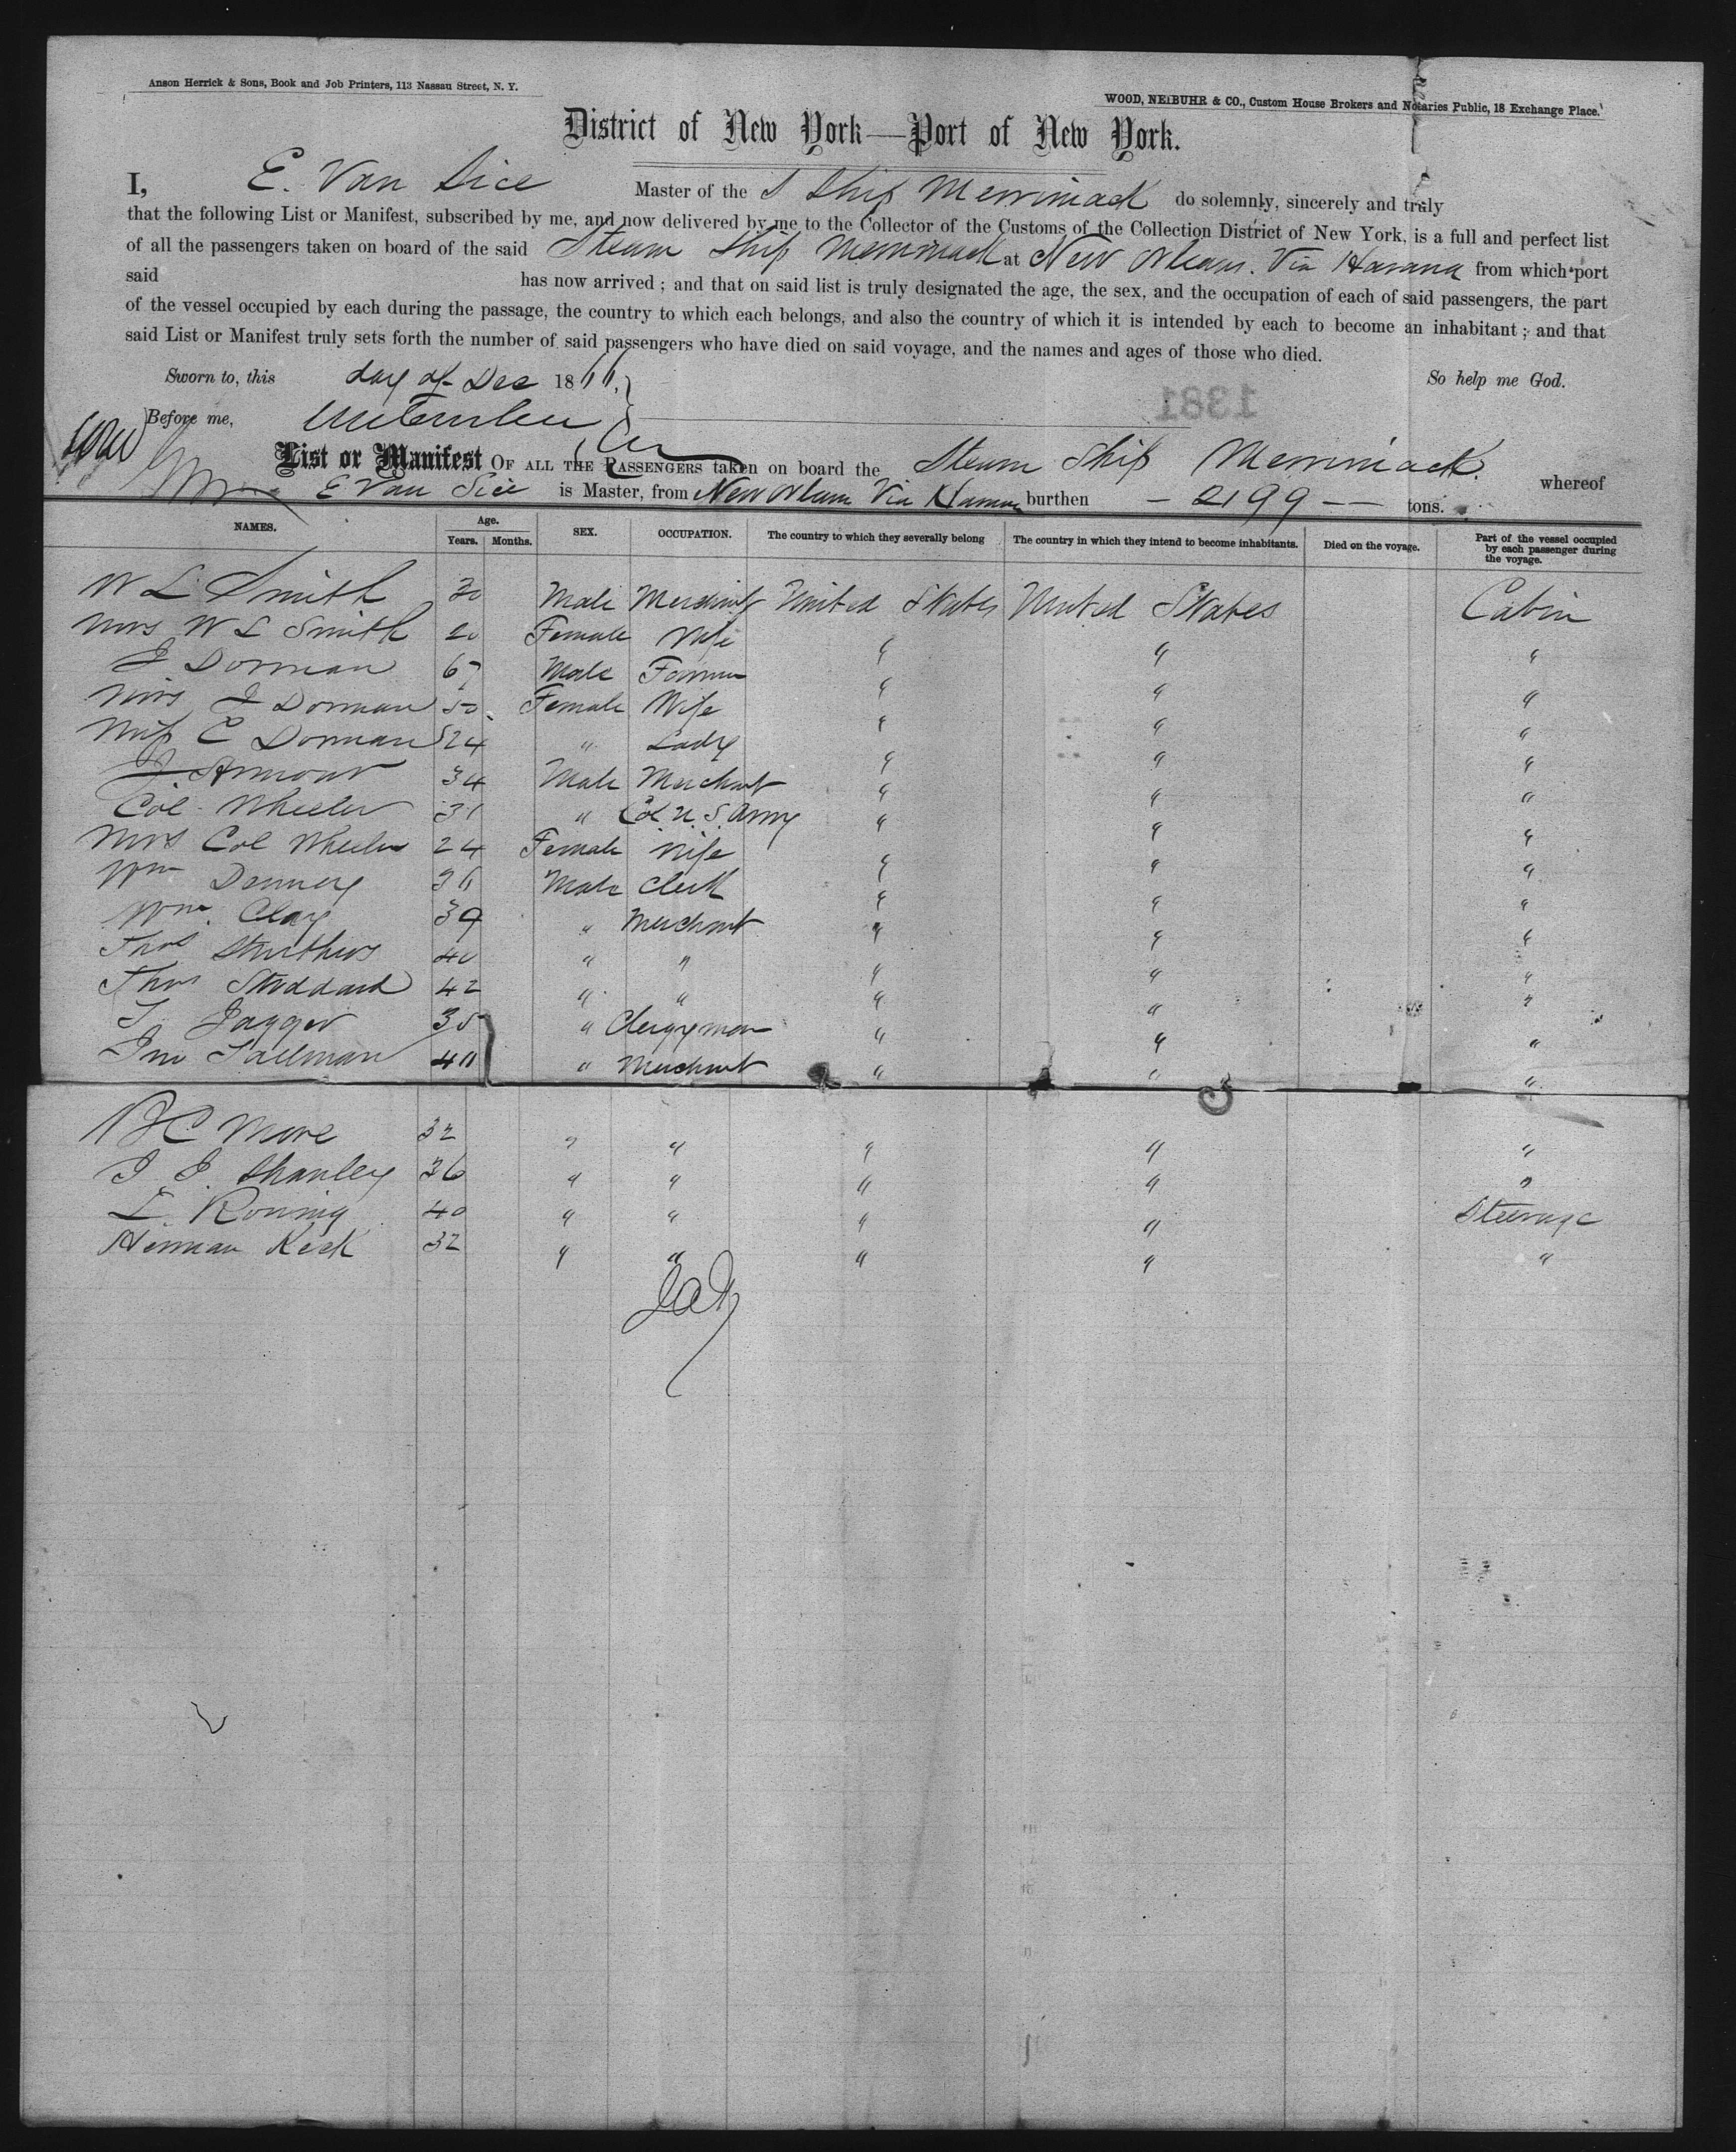 Anson Herrick & Sons, Book and Job Printers, 113 Nassau Street, N. Y.
WOOD, NEIBUHR & CO., Custom House Brokers and Notaries Public, 18 Exchange Place.
District of New York—Port of New York.
I, E. Van Sice Master of the S Ship Merrimack do solemnly, sincerely and truly
that the following List or Manifest, subscribed by me, and now delivered by me to the Collector of the Customs of the Collection District of New York, is a full and perfect list
of all the passengers taken on board of the said Steam Ship Merrimack at New Orleans. Via Havana from which port
said has now arrived ; and that on said list is truly designated the age, the sex, and the occupation of each of said passengers, the part
of the vessel occupied by each during the passage, the country to which each belongs, and also the country of which it is intended by each to become an inhabitant ; and that
said List or Manifest truly sets forth the number of said passengers who have died on said voyage, and the names and ages of those who died.
Sworn to, this day of Dec 18 So help me God.
1381
Before me,
List or Manifest OF ALL THE PASSENGERS taken on board the Steam Ship Merrimack. whereof
E Van Sice is Master, from New Orleans Via Havana burthen — 2199 — tons.
NAMES. Age. Years. Months. SEX. OCCUPATION. The country to which they severally belong The country in which they intend to become inhabitants. Died on the voyage. Part of the vessel occupied by each passenger during the voyage.
W L Smith 30 Male Merchant United States United States Cabin
Mrs W L Smith 20 Female Wife " " "
J Dorman 67 Male Farmer " " "
Mrs J Dorman 50 Female Wife " " "
Miss C Dorman 24 " Lady " " "
J Armour 34 Male Merchant " " "
Col Wheeler 31 " Col U. S. Army " " "
Mrs Col Wheeler 24 Female Wife " " "
Wm Dennery Male Clerk " " "
Wm. Clay 39 " Merchant " " "
Thos Struthers 40 " " " " "
Thos Stoddard 42 " " " " "
Jagger 35 " Clergyman " " "
Jno Tallman " Merchant " " "
More 32 " " " " "
J. Shanley 36 " " " " "
L. Roning 40 " " " " Steerage
Herman Keck 32 " " " " "